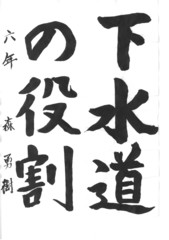 下水道
の役割
六年 森勇樹